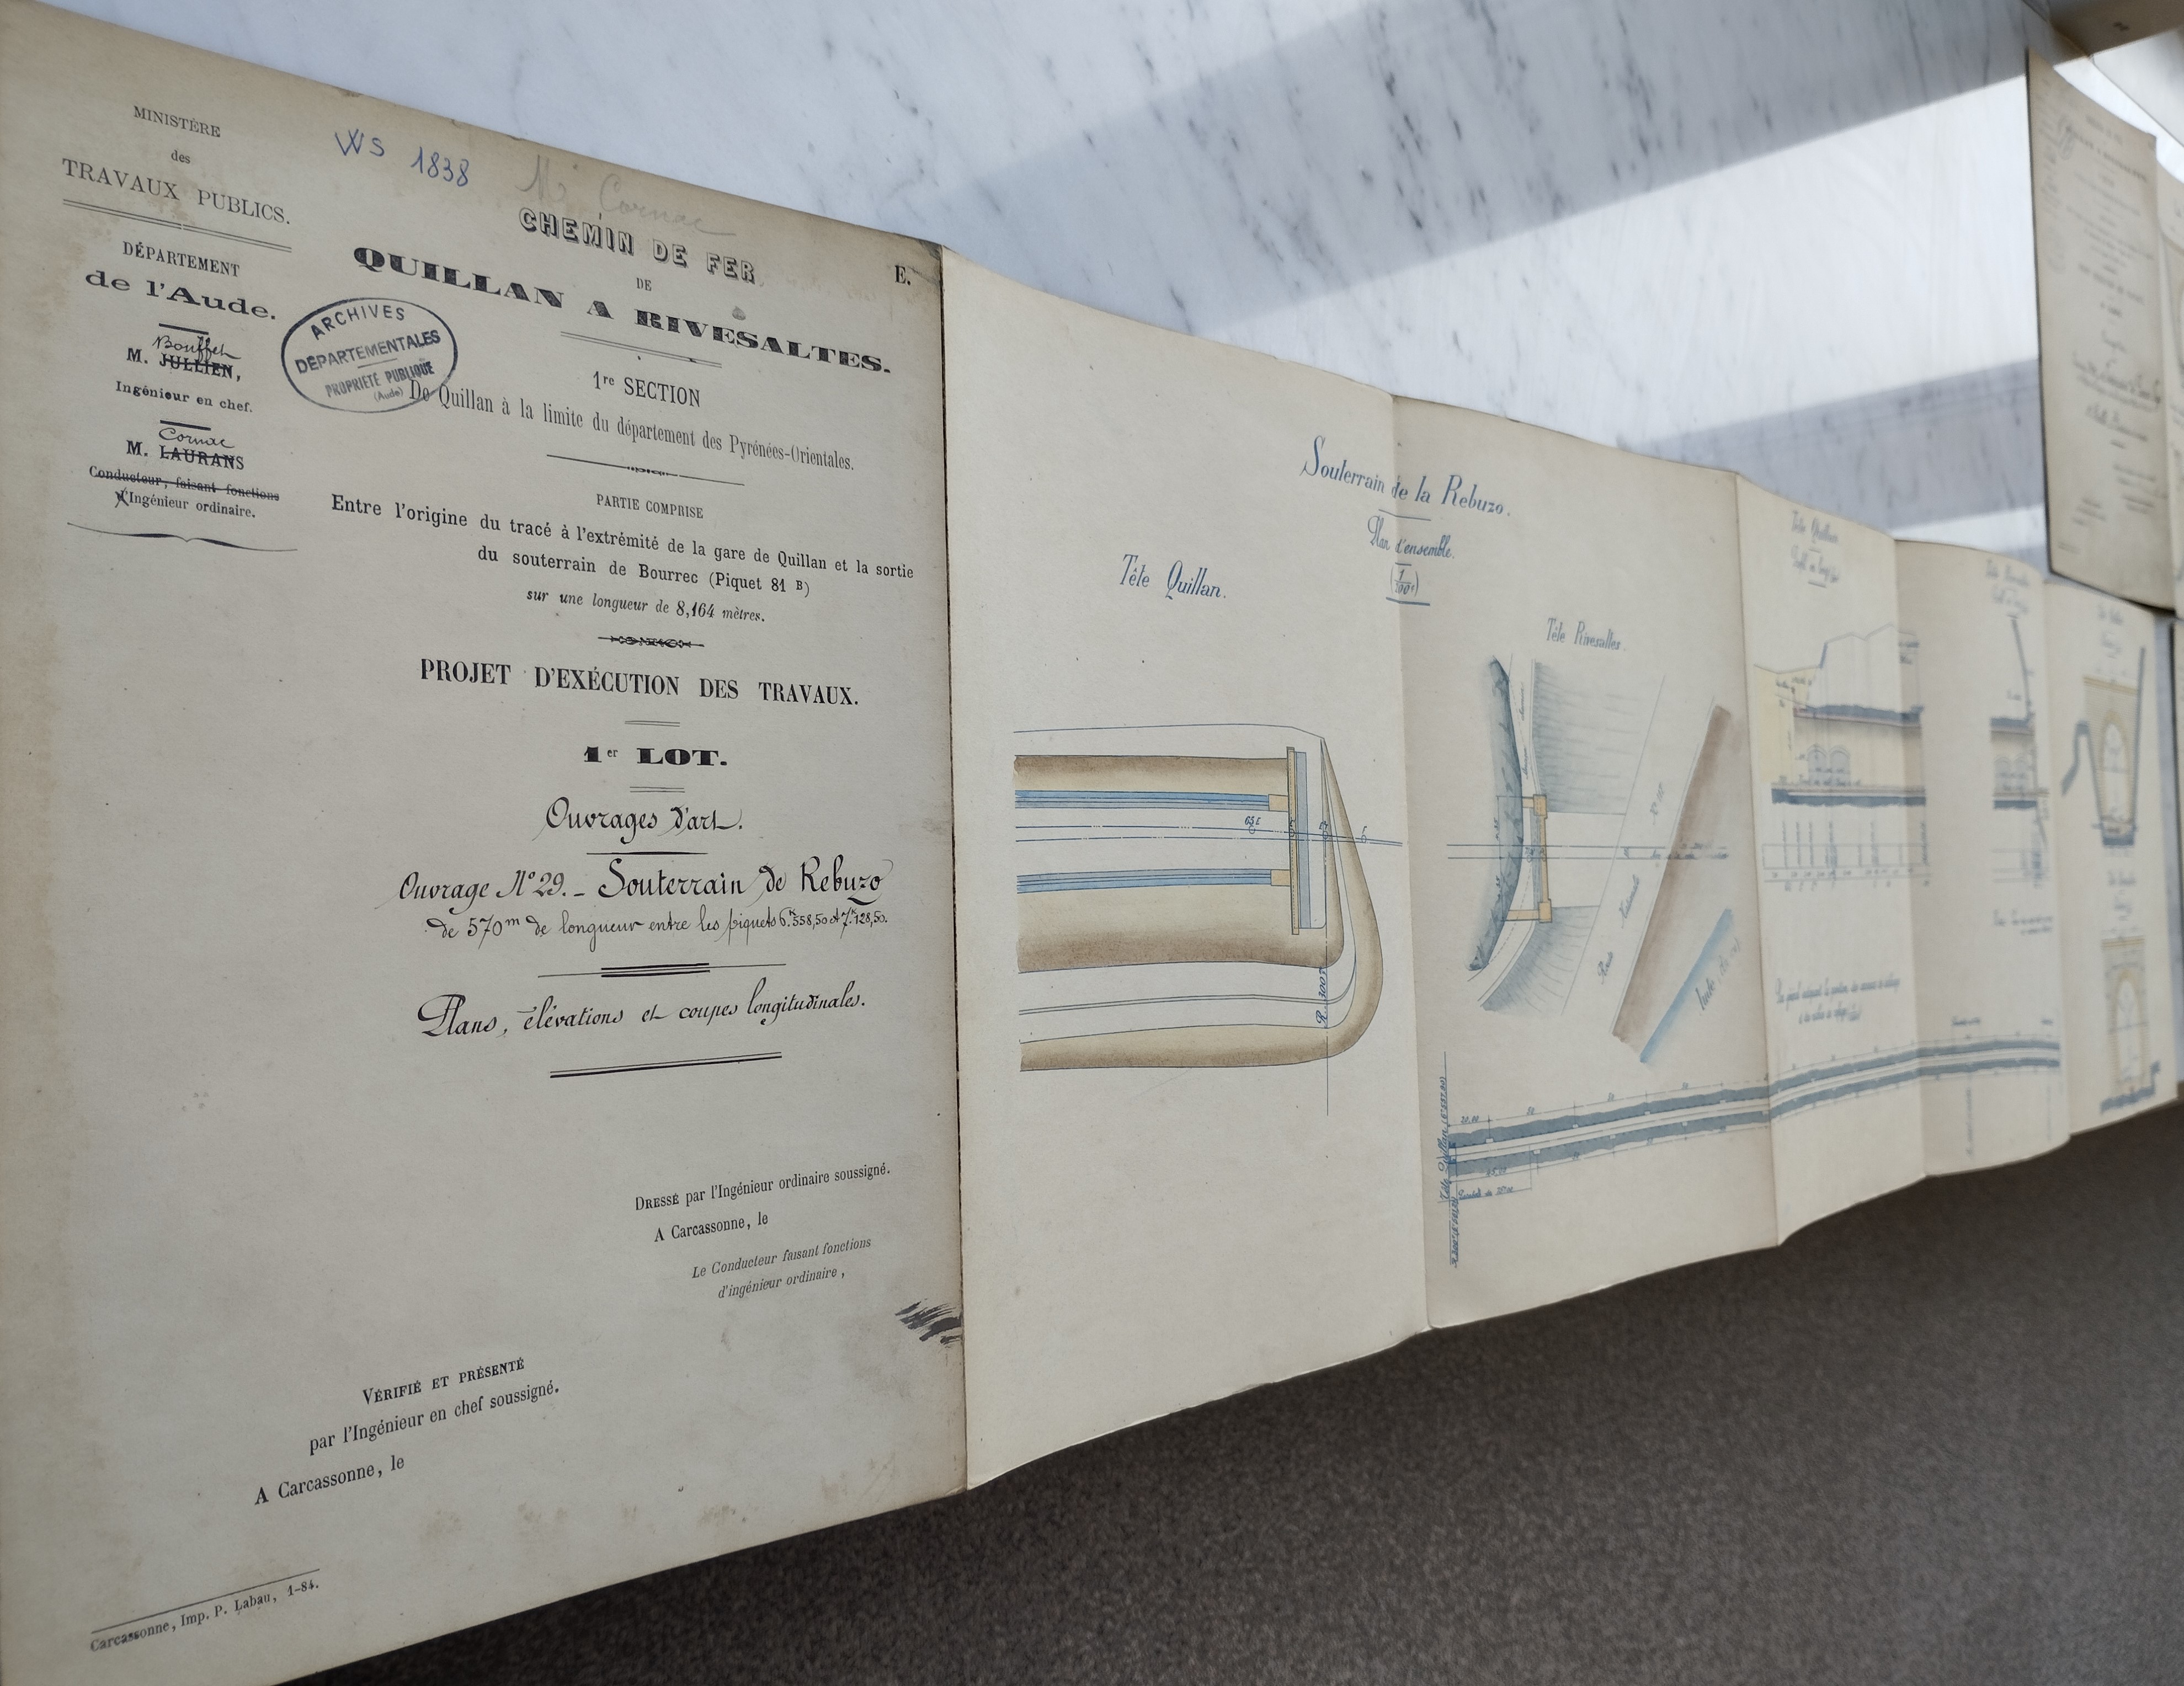 MINISTÈRE
des
TRAVAUX PUBLICS.
DÉPARTEMENT
de l'Aude.
Bouffet
M. JULLIEN,
Ingénieur en chef.
Cornac
M. LAURANS
Conducteur, faisant fonctions
d'Ingénieur ordinaire.
WS 1838
Mr Cornac
ARCHIVES
DÉPARTEMENTALES
PROPRIÉTÉ PUBLIQUE
(Aude)
CHEMIN DE FER
DE
E.
QUILLAN A RIVESALTES.
1re SECTION
De Quillan à la limite du département des Pyrénées-Orientales.
PARTIE COMPRISE
Entre l'origine du tracé à l'extrémité de la gare de Quillan et la sortie
du souterrain de Bourrec (Piquet 81 B)
sur une longueur de 8,164 mètres.
PROJET D'EXÉCUTION DES TRAVAUX.
1er LOT.
Ouvrages d'art.
Ouvrage N° 29. - Souterrain de Rebuzo
de 570m de longueur entre les piquets 6k.558,50 et 7k.128,50.
Plans, élévations et coupes longitudinales.
DRESSÉ par l'Ingénieur ordinaire soussigné.
A Carcassonne, le
Le Conducteur faisant fonctions
d'ingénieur ordinaire,
VÉRIFIÉ ET PRÉSENTÉ
par l'Ingénieur en chef soussigné.
A Carcassonne, le
Carcassonne, Imp. P. Labau, 1-84.
Souterrain de la Rebuzo.
Plan d'ensemble.
Tête Quillan.
R. 300
Tête Rivesaltes.
Tête Quillan
20.00
Tête Quillan